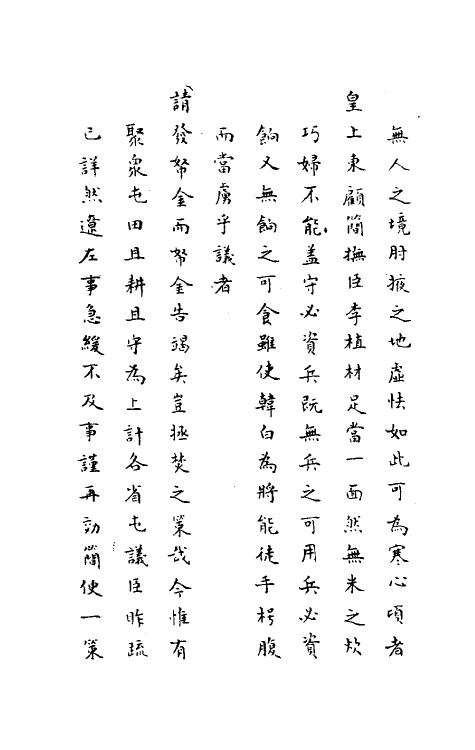 無人之境肘掖之地虛怯如此可為寒心頃者
皇上東顧簡撫臣李植材足當一面然無米之炊
巧婦不能蓋守必資兵既無兵之可用兵必資
餉又無餉之可食雖使韓白為將能徒手枵腹
而當虜乎議者
請發帑金而帑金告竭矣豈拯焚之策哉今惟有
聚眾屯田且耕且守為上計各省屯議臣昨疏
已詳然遼左事急緩不及事謹再効簡便一策